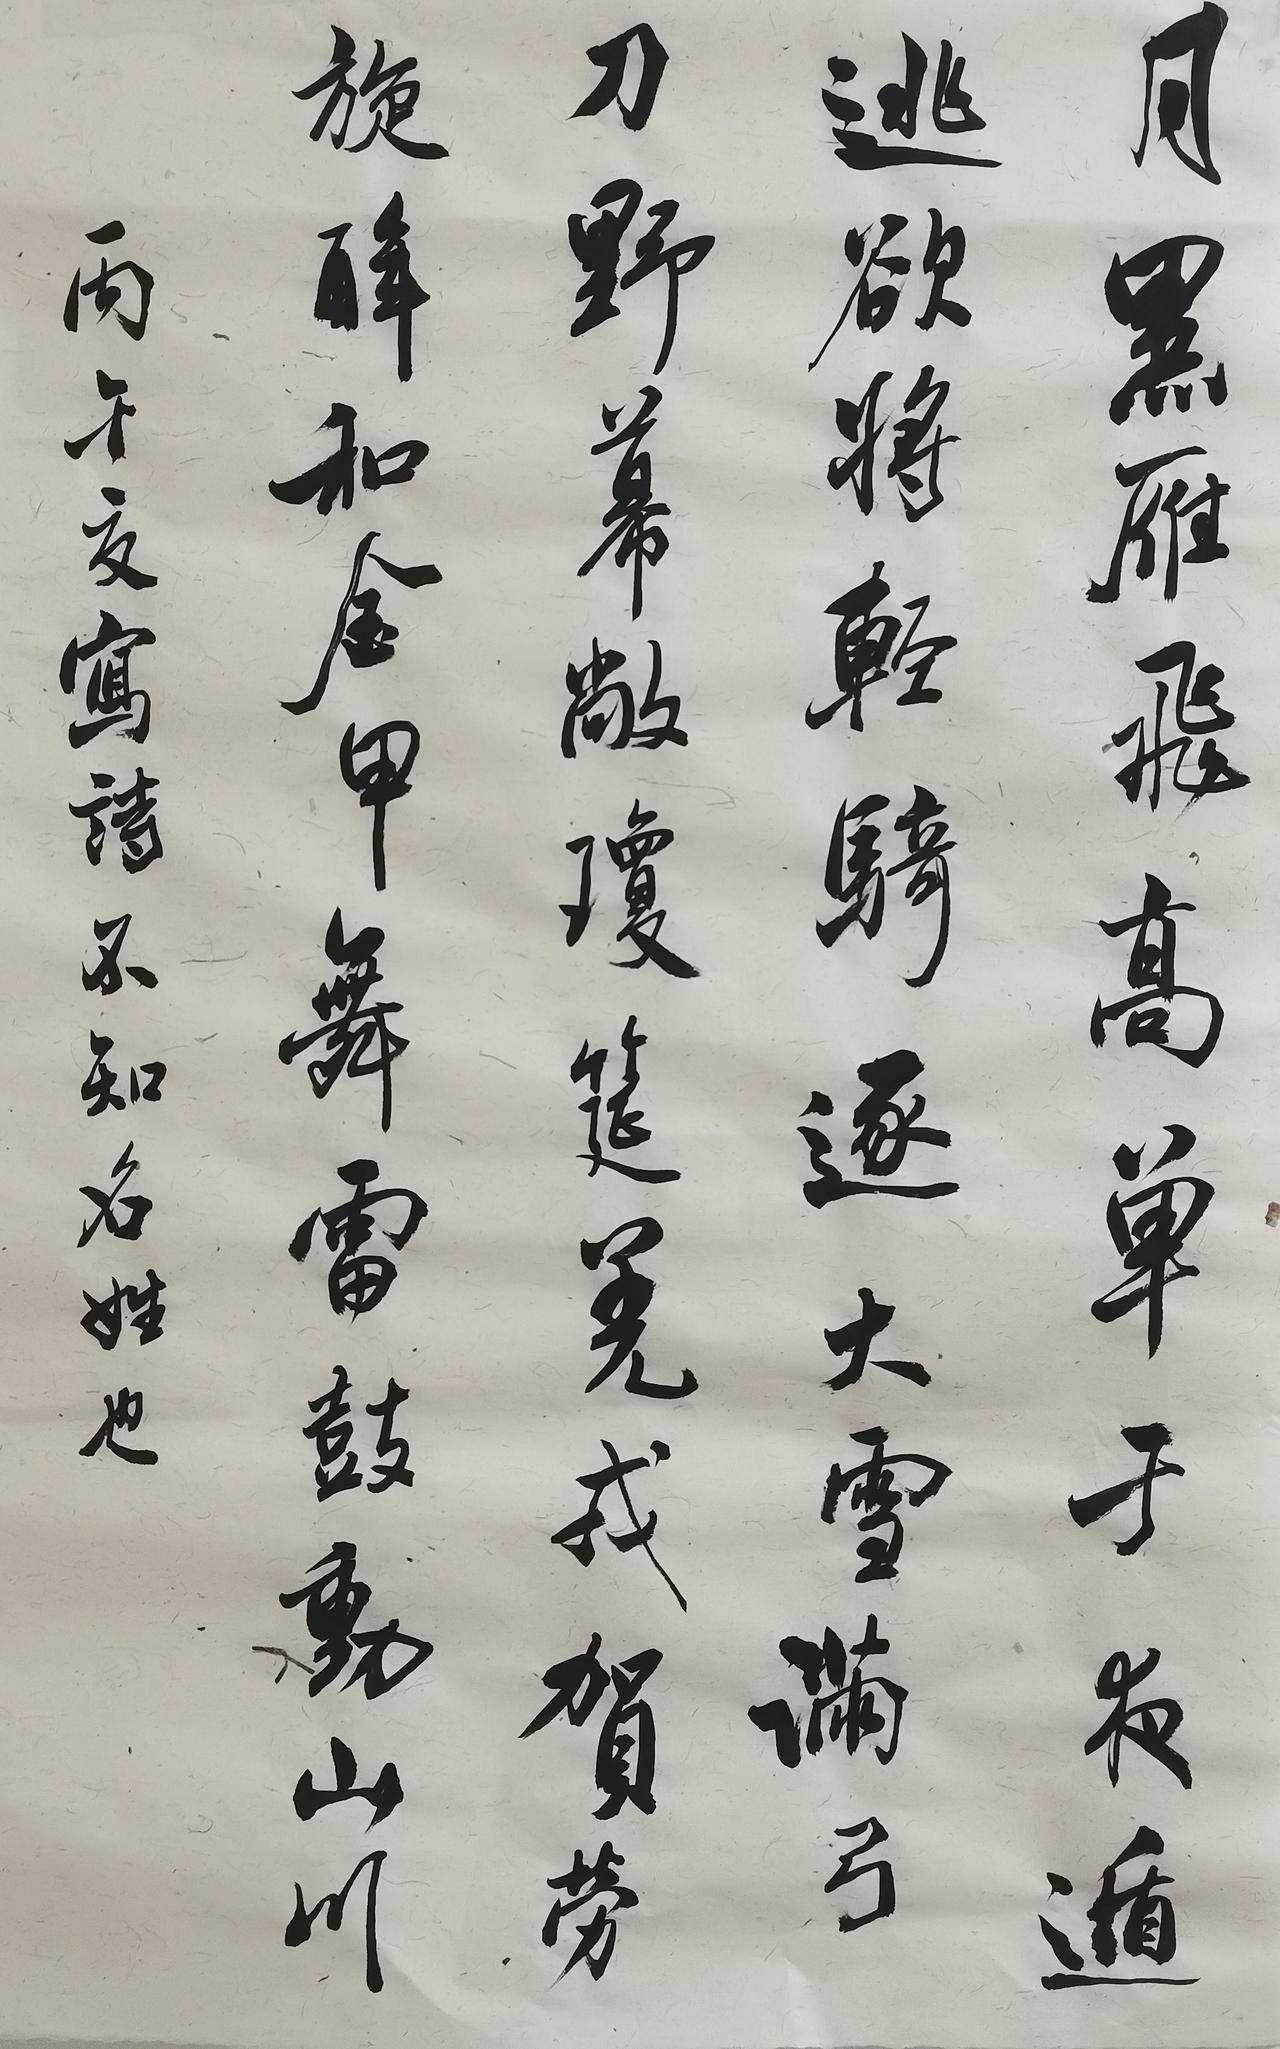 月黑雁飛高单于夜遁
逃欲將輕騎逐大雪滿弓
刀野幕敞瓊筵羌戎賀勞
旋醉和金甲舞雷鼓動山川
丙午夏寫詩不知名姓也